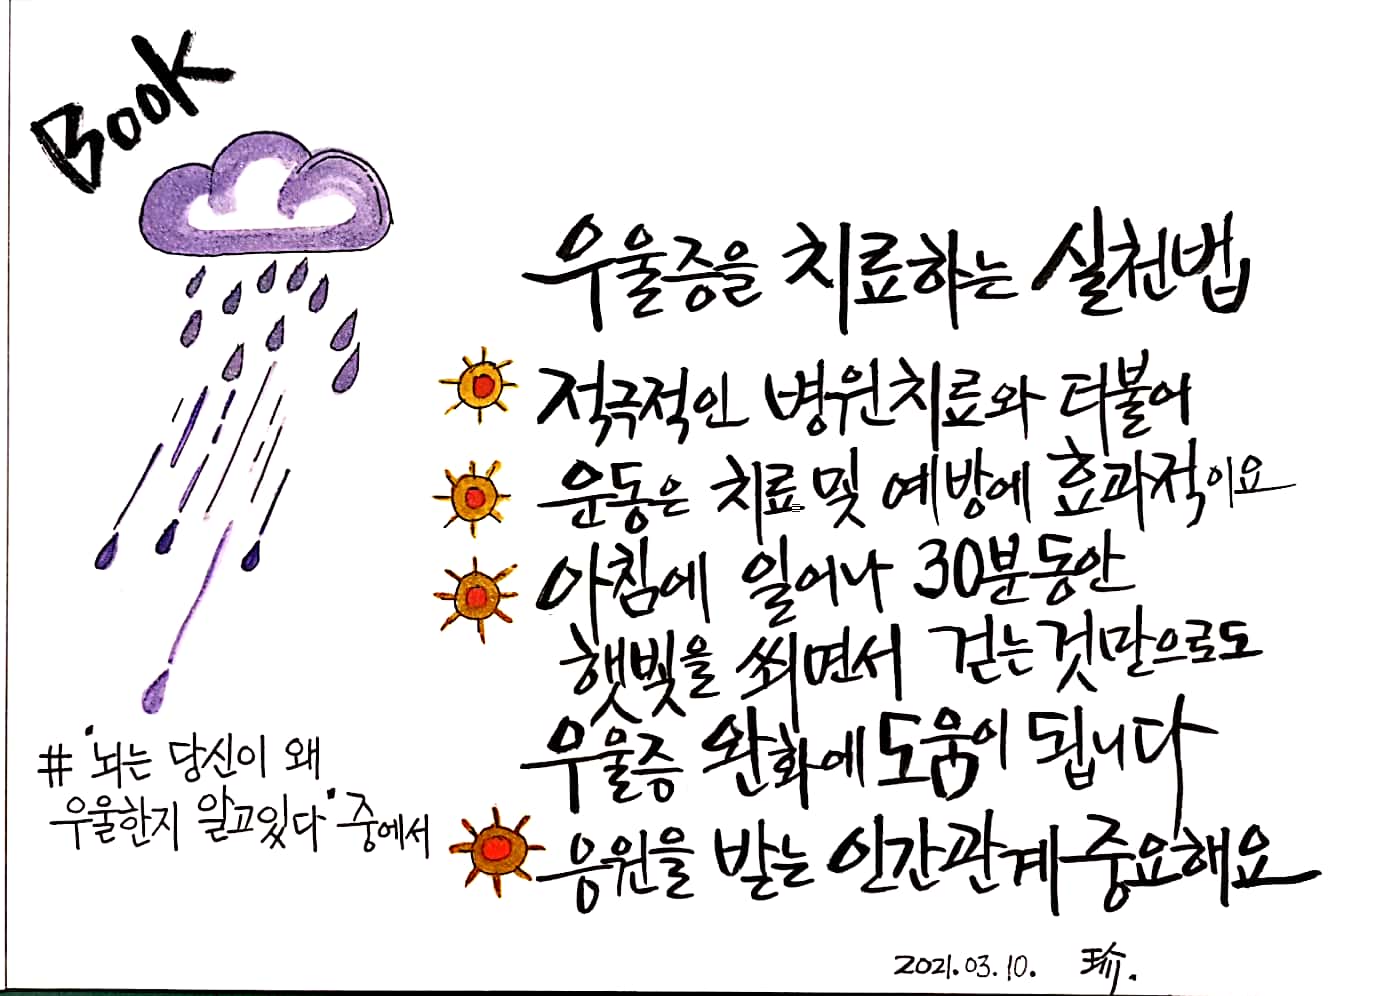 Book
우울증을 치료하는 실천법
적극적인 병원치료와 더불어
운동은 치료및 예방에 효과적이요
아침에 일어나 30분동안
햇빛을 쬐면서 걷는것만으로도
우울증 완화에 도움이 됩니다
응원을 받는 인간관계 중요해요
# "뇌는 당신이 왜
우울한지 알고있다" 중에서
2021.03.10. 珍.